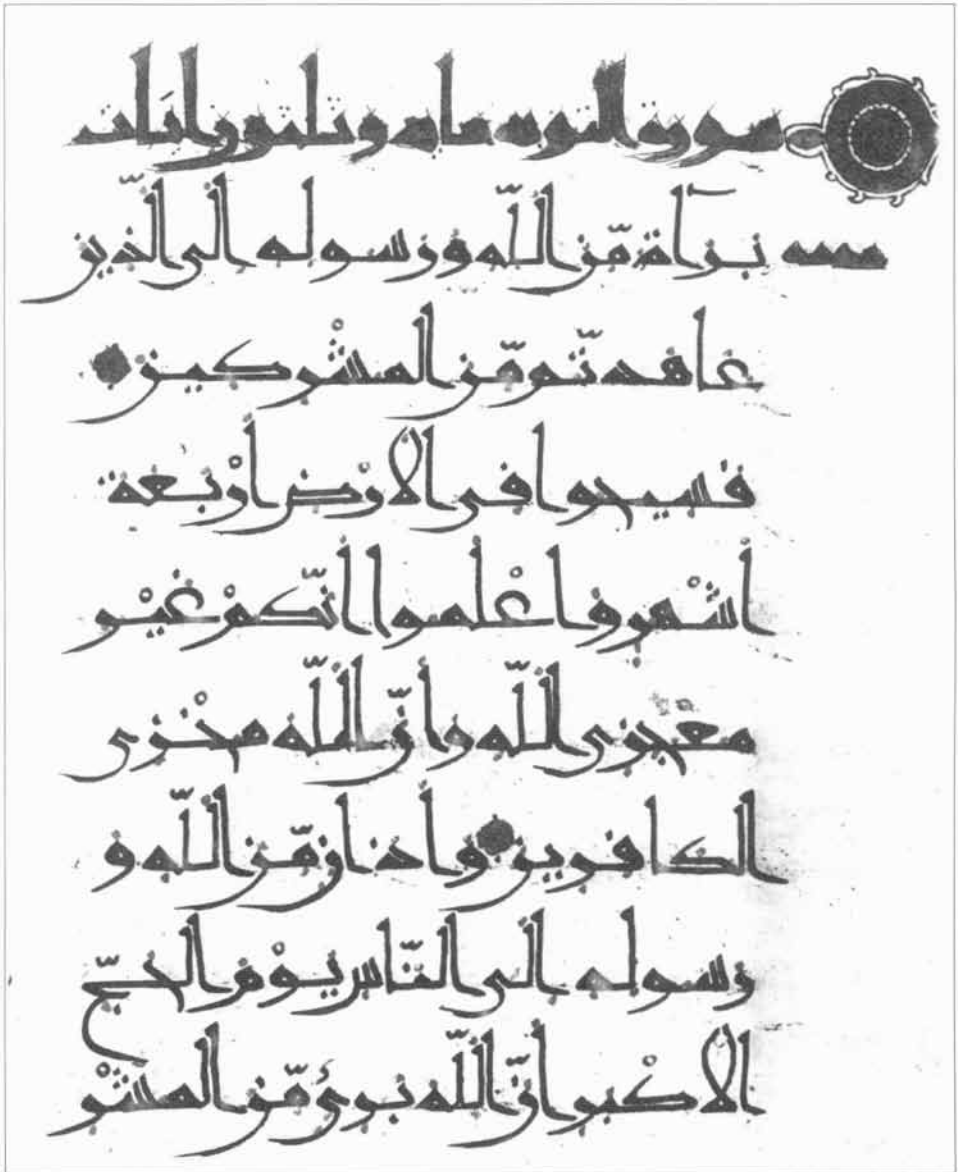 سورة التوبه مايه وثلثون وايات
برآة مّن اللّه ورسوله الى الّذين
عاهدتّم مّن المشْركين
فسيحوا فى الارْض أرْبعة
أشْهر واعْلموا أنّكمْ غيْر
معْجزى اللّه وأنّ اللّه مخْزى
الكافرين وأذان مّن اللّه و
رسوله الى النّاس يوْم الحجّ
الاكْبر أنّ اللّه برىء مّن المشْر